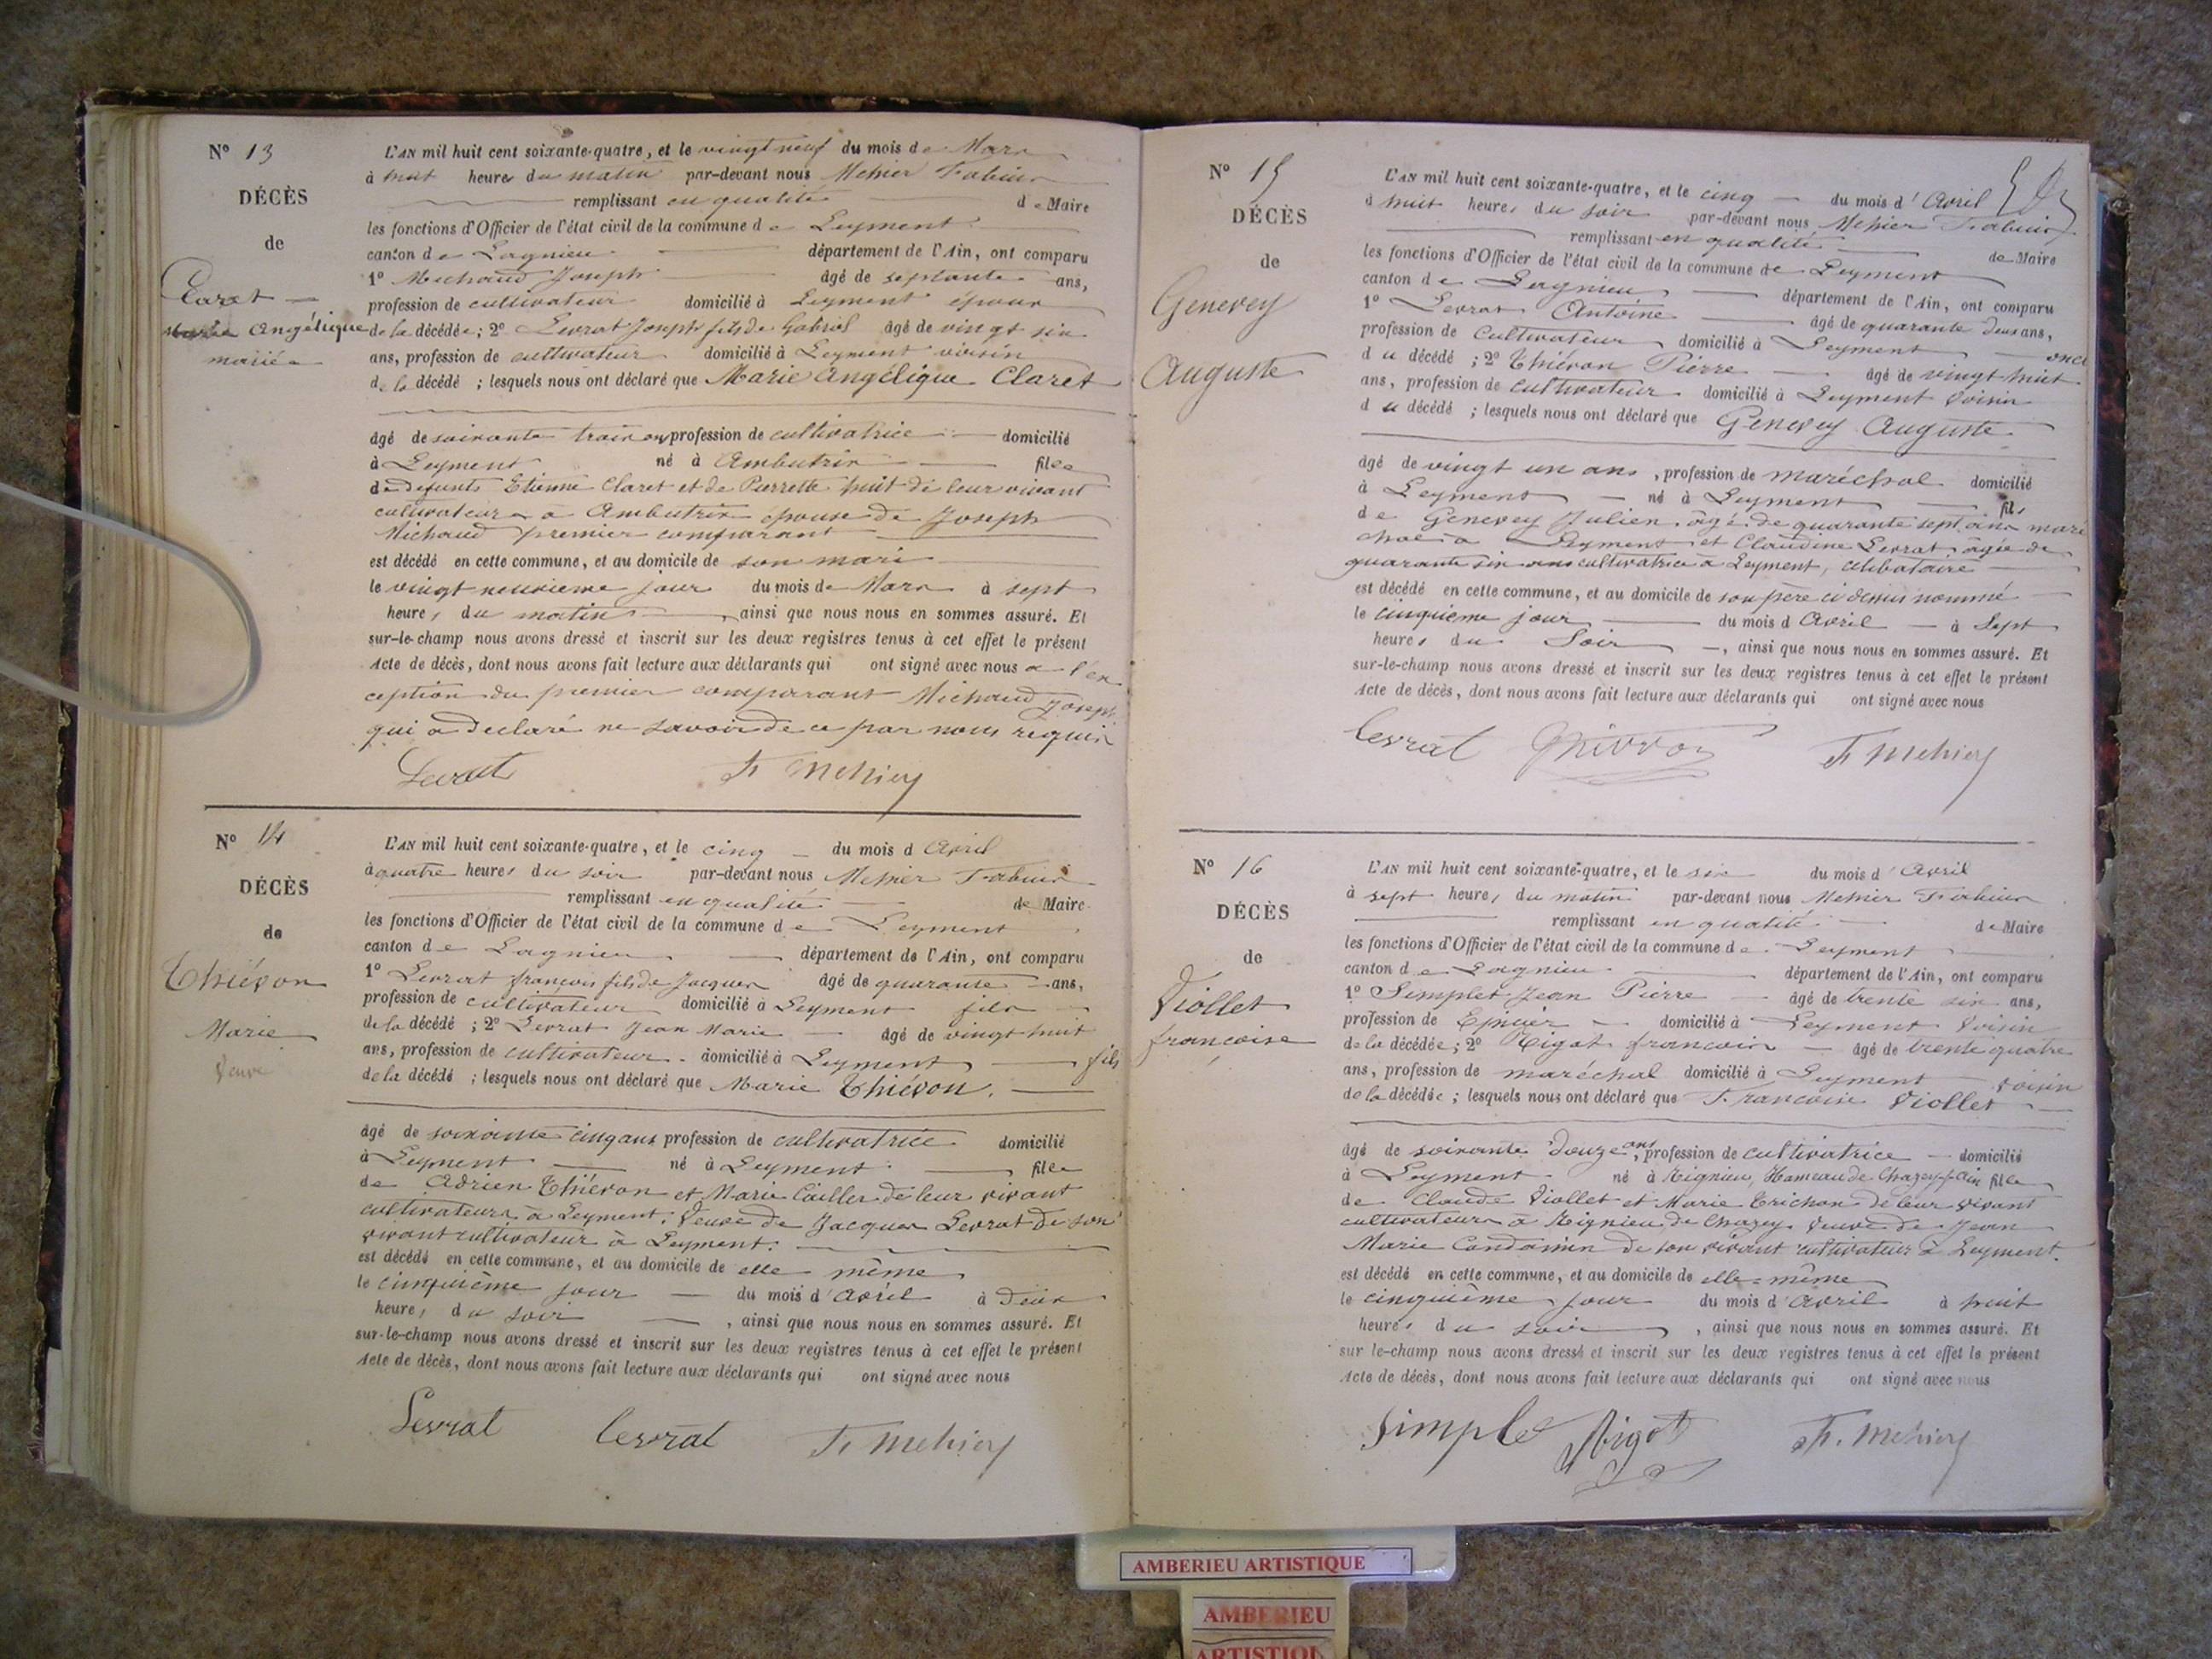 N° 13
DÉCÈS
de
Claret
Marie Angélique
mariée
L'AN mil huit cent soixante-quatre, et le vingt neuf du mois de Mars
à huit heures du matin par-devant nous Mehier Fabien
remplissant en qualité de Maire
les fonctions d'Officier de l'état civil de la commune de Leyment
canton de Lagnieu département de l'Ain, ont comparu
1° Michaud Joseph âgé de septante ans,
profession de cultivateur domicilié à Leyment époux
de la décédée; 2° Levrat Joseph fils de Gabriel âgé de vingt six
ans, profession de cultivateur domicilié à Leyment voisin
de la décédé ; lesquels nous ont déclaré que Marie Angélique Claret
âgé de soixante trois ans profession de cultivatrice domicilié
à Leyment né à Ambutrix fille
de defunts Etienne Claret et de Pierrette huit de leur vivant
cultivateurs a Ambutrix épouse de Joseph
Michaud premier comparant
est décédé en cette commune, et au domicile de son mari
le vingt neuvieme jour du mois de Mars à sept
heures du matin, ainsi que nous nous en sommes assuré. Et
sur-le-champ nous avons dressé et inscrit sur les deux registres tenus à cet effet le présent
Acte de décès, dont nous avons fait lecture aux déclarants qui ont signé avec nous a l'ex
ception du premier comparant Michaud Joseph
qui a declaré ne savoir de ce par nous requis
Levrat F. Mehier
N° 14
DÉCÈS
de
Thiévon
Marie
Veuve
L'AN mil huit cent soixante-quatre, et le cinq du mois d Avril
à quatre heures du soir par-devant nous Mehier Fabien
remplissant en qualité de Maire
les fonctions d'Officier de l'état civil de la commune de Leyment
canton de Lagnieu département de l'Ain, ont comparu
1° Levrat françois fils de Jacques âgé de quarante ans,
profession de cultivateur domicilié à Leyment fils
de la décédé ; 2° Levrat Jean Marie âgé de vingt huit
ans, profession de cultivateur domicilié à Leyment fils
de la décédé ; lesquels nous ont déclaré que Marie Thiévon.
âgé de soixante cinq ans profession de cultivatrice domicilié
à Leyment né à Leyment fille
de Adrien Thiévon et Marie Cailler de leur vivant
cultivateurs à Leyment. Veuve de Jacques Levrat de son
vivant cultivateur à Leyment.
est décédé en cette commune, et au domicile de elle même
le cinquième jour du mois d'Avril à Deux
heures du soir, ainsi que nous nous en sommes assuré. Et
sur-le-champ nous avons dressé et inscrit sur les deux registres tenus à cet effet le présent
Acte de décès, dont nous avons fait lecture aux déclarants qui ont signé avec nous
Levrat Levrat F. Mehier
N° 15
DÉCÈS
de
Genevey
Auguste
L'AN mil huit cent soixante-quatre, et le cinq du mois d'Avril
à huit heures du soir par-devant nous Mehier Fabien
remplissant en qualité de Maire
les fonctions d'Officier de l'état civil de la commune de Leyment
canton de Lagnieu département de l'Ain, ont comparu
1° Levrat Antoine âgé de quarante deux ans,
profession de Cultivateur domicilié à Leyment oncle
du décédé ; 2° Thiévon Pierre âgé de vingt huit
ans, profession de cultivateur domicilié à Leyment Voisin
du décédé ; lesquels nous ont déclaré que Genevey Auguste
âgé de vingt un ans, profession de maréchal domicilié
à Leyment né à Leyment fils
de Genevey Julien âgé de quarante sept ans maré
chal à Leyment et Claudine Levrat âgée de
quarante six ans cultivatrice à Leyment, célibataire
est décédé en cette commune, et au domicile de son père ci dessus nommé
le cinquieme jour du mois d Avril à Sept
heures du Soir, ainsi que nous nous en sommes assuré. Et
sur-le-champ nous avons dressé et inscrit sur les deux registres tenus à cet effet le présent
Acte de décès, dont nous avons fait lecture aux déclarants qui ont signé avec nous
Levrat Thivvon F. Mehier
N° 16
DÉCÈS
de
Viollet
françoise
L'AN mil huit cent soixante-quatre, et le six du mois d'Avril
à sept heures du matin par-devant nous Mehier Fabien
remplissant en qualité de Maire
les fonctions d'Officier de l'état civil de la commune de Leyment
canton de Lagnieu département de l'Ain, ont comparu
1° Simplet Jean Pierre âgé de trente six ans,
profession de Epicier domicilié à Leyment Voisin
de la décédée; 2° Rigot françois âgé de trente quatre
ans, profession de maréchal domicilié à Leyment voisin
de la décédée ; lesquels nous ont déclaré que Françoise Viollet
âgé de soixante Douze ans, profession de cultivatrice domicilié
à Leyment né à Rignieu, Hameau de Chazey s/ Ain fille
de Claude Viollet et Marie Trichon de leur vivant
cultivateurs à Rignieu de Chazey. Veuve de Jean
Marie Condamin de son vivant cultivateur à Leyment.
est décédé en cette commune, et au domicile de elle-même
le cinquième jour du mois d'Avril à huit
heures du soir, ainsi que nous nous en sommes assuré. Et
sur le-champ nous avons dressé et inscrit sur les deux registres tenus à cet effet le présent
Acte de décès, dont nous avons fait lecture aux déclarants qui ont signé avec nous
Simplet Rigot F. Mehier
AMBERIEU ARTISTIQUE
AMBERIEU
ARTISTIQU